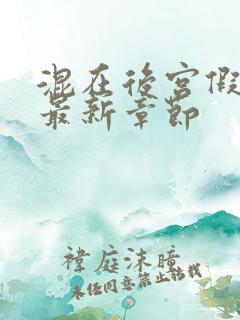 混在後宮假
最新章節
禕庭沫瞳
未经同意禁止转载